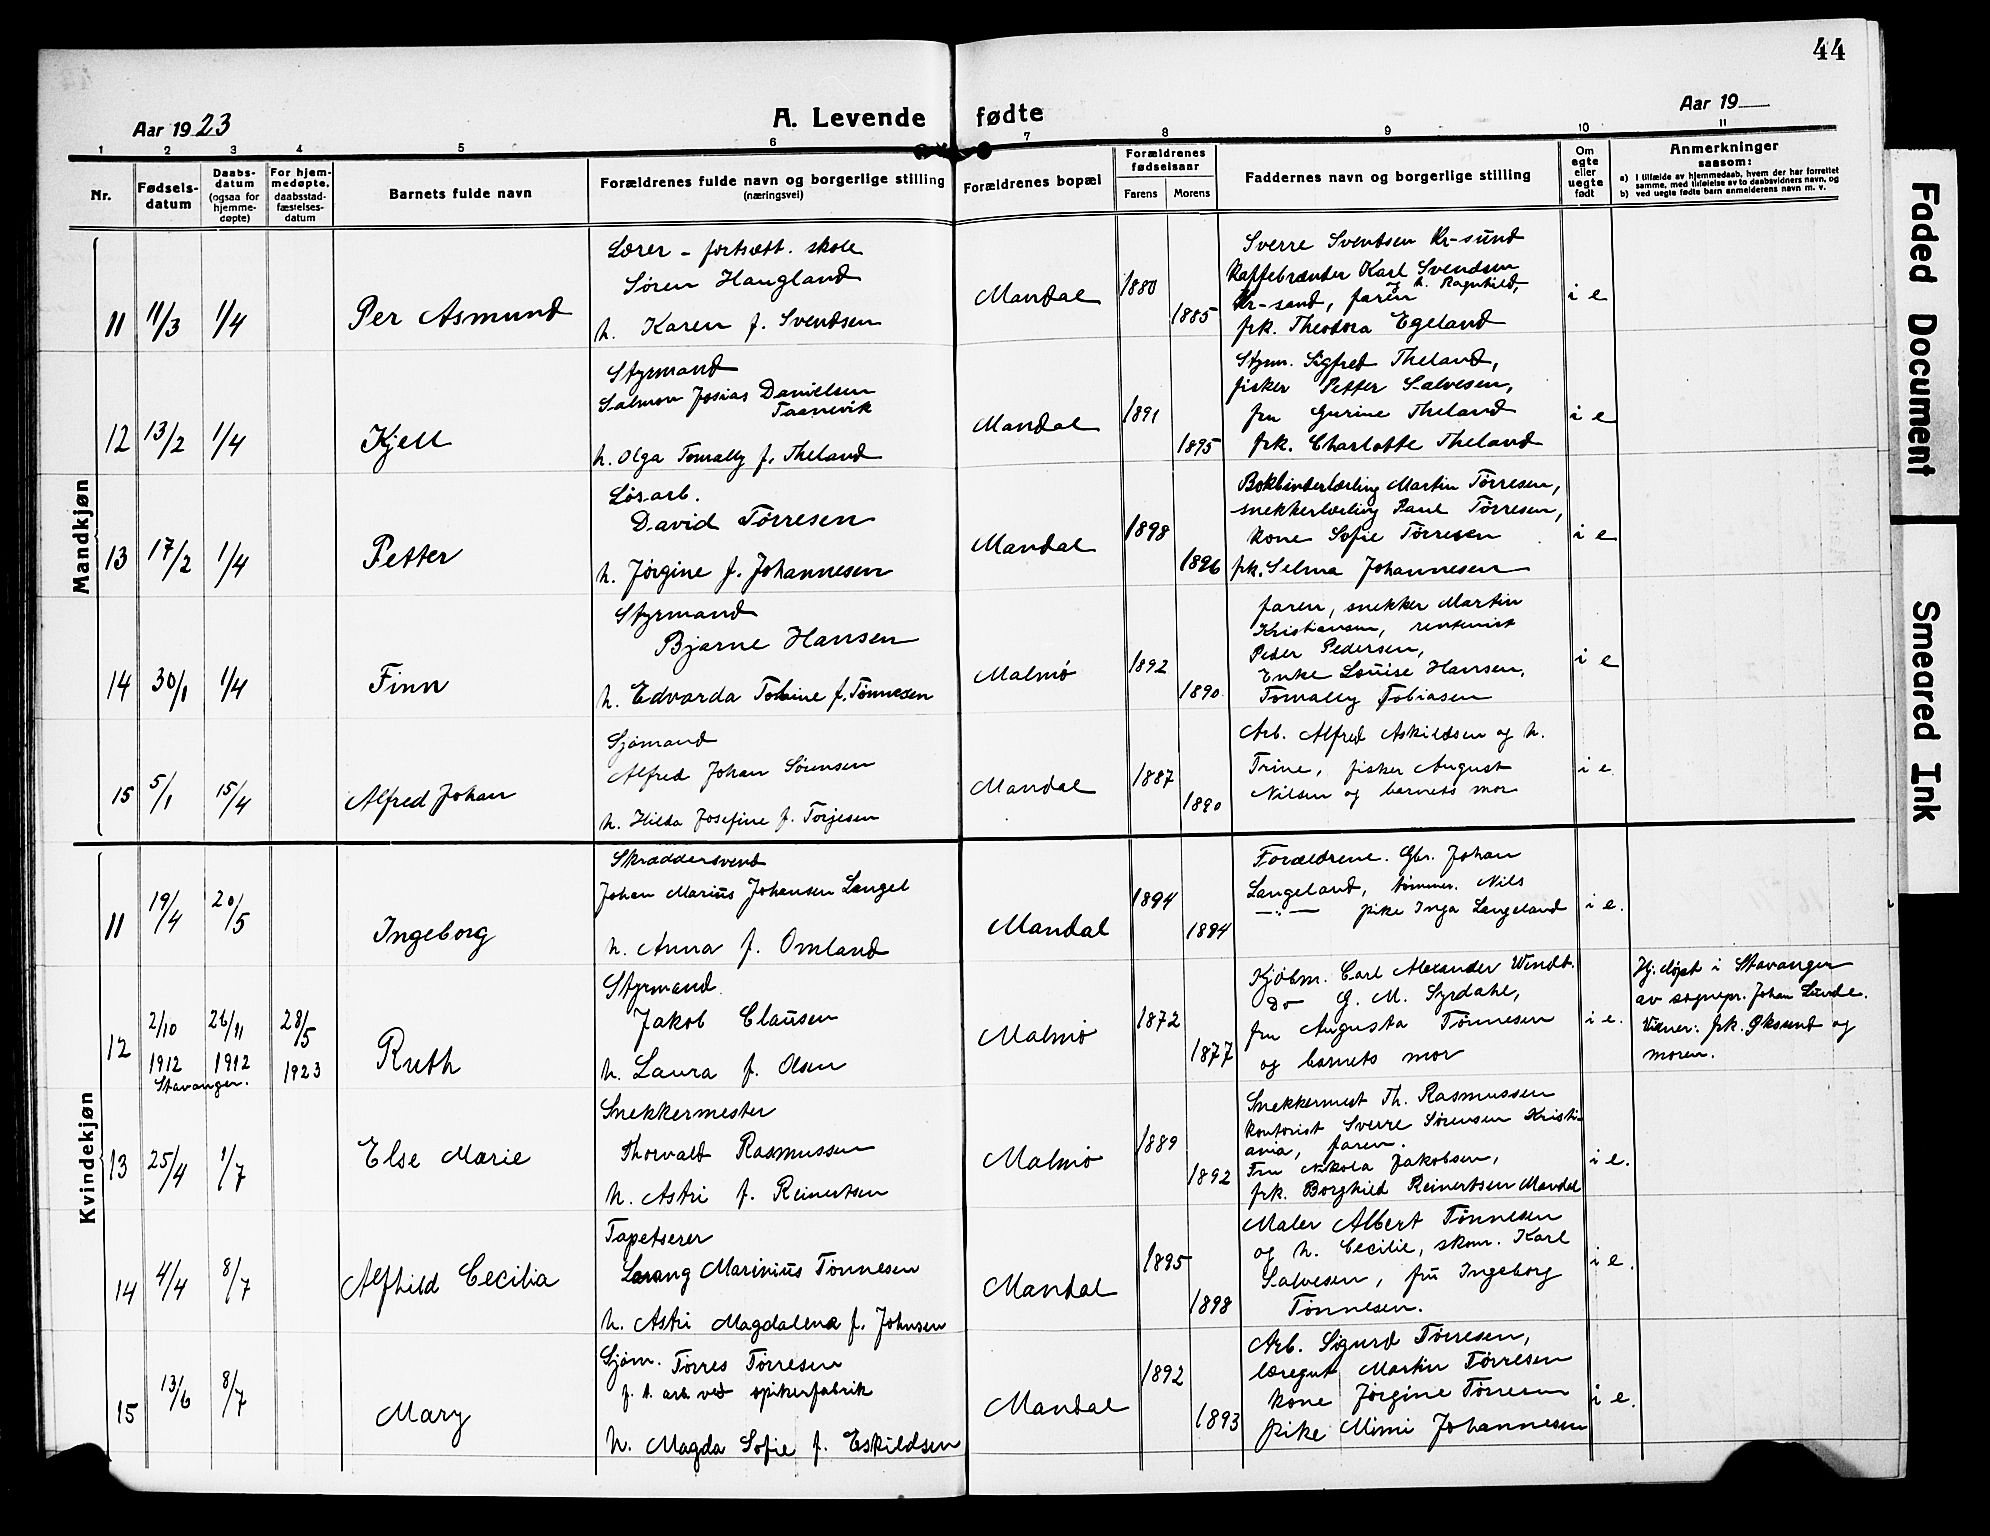 44
Aar 1923
A. Levende fødte
Aar 19
1 2 3 4 5 6 7 8 9 10 11
Nr.
Fødsels-datum
Daabs-datum (ogsaa for hjemme-døpte)
For hjem-medøpte. daabsstad-fæstelses-datum
Barnets fulde navn
Forældrenes fulde navn og borgerlige stilling (næringsvei)
Forældrenes bopæl
Forældrenes fødselsaar
Farens Morens
Faddernes navn og borgerlige stilling
Om egte eller uegte født
Anmerkninger
saasom:
a) I tilfælde av hjemmedaab, hvem der har forrettet samme, med tilføielse av to daabsvidners navn, og
b) ved uegte fødte barn anmelderens navn m. v.
Mandkjøn
11 11/3 1/4 Per Asmund
Lærer - fortsætt. skole
Søren Haugland
h. Karen f. Svendsen
Mandal 1880 1885
Sverre Svendsen Kr-sund
Kaffebrænder Karl Svendsen
og h. Ragnhild,
Kr-sand, faren
frk. Theodora Egeland
i e
12 13/2 1/4 Kjell
Styrmand
Salmon Josias Danielsen
Taanevik
h. Olga Tomally f. Theland
Mandal 1891 1895
Styrm. Sigfred Theland,
fisker Petter Salvesen,
fru Gurine Theland
frk. Charlotte Theland
i e
13 17/2 1/4 Petter
Løsarb.
David Tørresen
h. Jørgine f. Johannesen
Mandal 1898 1896
Bokbinderlærling Martin Tørresen,
snekkerlærling Paul Tørresen,
kone Sofie Tørresen
frk. Selma Johannesen
i e
14 30/1 1/4 Finn
Styrmand
Bjarne Hansen
h. Edvarda Tobine f. Tønnesen
Malmø 1892 1890
faren, snekker Martin
Kristiansen, rentenist
Peder Pedersen,
Enke Louise Hansen,
Tomally Tobiasen
i e
15 5/1 15/4 Alfred Johan
Sjømand
Alfred Johan Sørensen
h. Hilda Josefine f. Torjesen
Mandal 1887 1890
Arb. Alfred Askildsen og h.
Trine, fisker August
Nilsen og barnets mor
i e
Kvindekjøn
11 19/4 20/5 Ingeborg
Skræddersvend
Johan Marius Johansen Langel
h. Anna f. Omland
Mandal 1894 1894
Forældrene. Gbr. Johan
Langeland, tømmer. Nils
—"— pike Inga Langeland
i e.
12 2/10 1912 Stavanger. 26/11 1912 28/5 1923 Ruth
Styrmand
Jakob Clausen
h. Laura f. Olsen
Malmø 1872 1877
Kjøbm. Carl Alexander Wendt.
Do G. M. Syrdahl,
fru Augusta Tønnesen
og barnets mor
i e.
Hj. døpt i Stavanger
av sognepr. Johan Lunde.
Vidner: frk. Øksund og
moren.
13 25/4 1/7 Else Marie
Snekkermester
Thorvald Rasmussen
h. Astri f. Reinertsen
Malmø 1889 1892
Snekkermest Th. Rasmussen
kontorist Sverre Sørensen Kristi-
ania, faren.
Fru Nikola Jakobsen,
frk. Borghild Reinertsen Mandal
i e.
14 4/4 8/7 Alfhild Cecilia
Tapetserer
Marinius Tønnesen
h. Astri Magdalena f. Johnsen
Mandal 1895 1898
Maler Albert Tønnesen
og h. Cecilie, skom. Karl
Salvesen, fru Ingeborg
Tønnesen.
i e.
15 13/6 8/7 Mary
Sjøm. Tørres Tørresen
f. t. arb. ved spikerfabrik
h. Magda Sofie f. Eskildsen
Mandal 1892 1893
Arb. Sigurd Tørresen,
læregut Martin Tørresen
kone Jørgine Tørresen
pike Mimi Johannesen
i e.
Faded Document
Smeared Ink